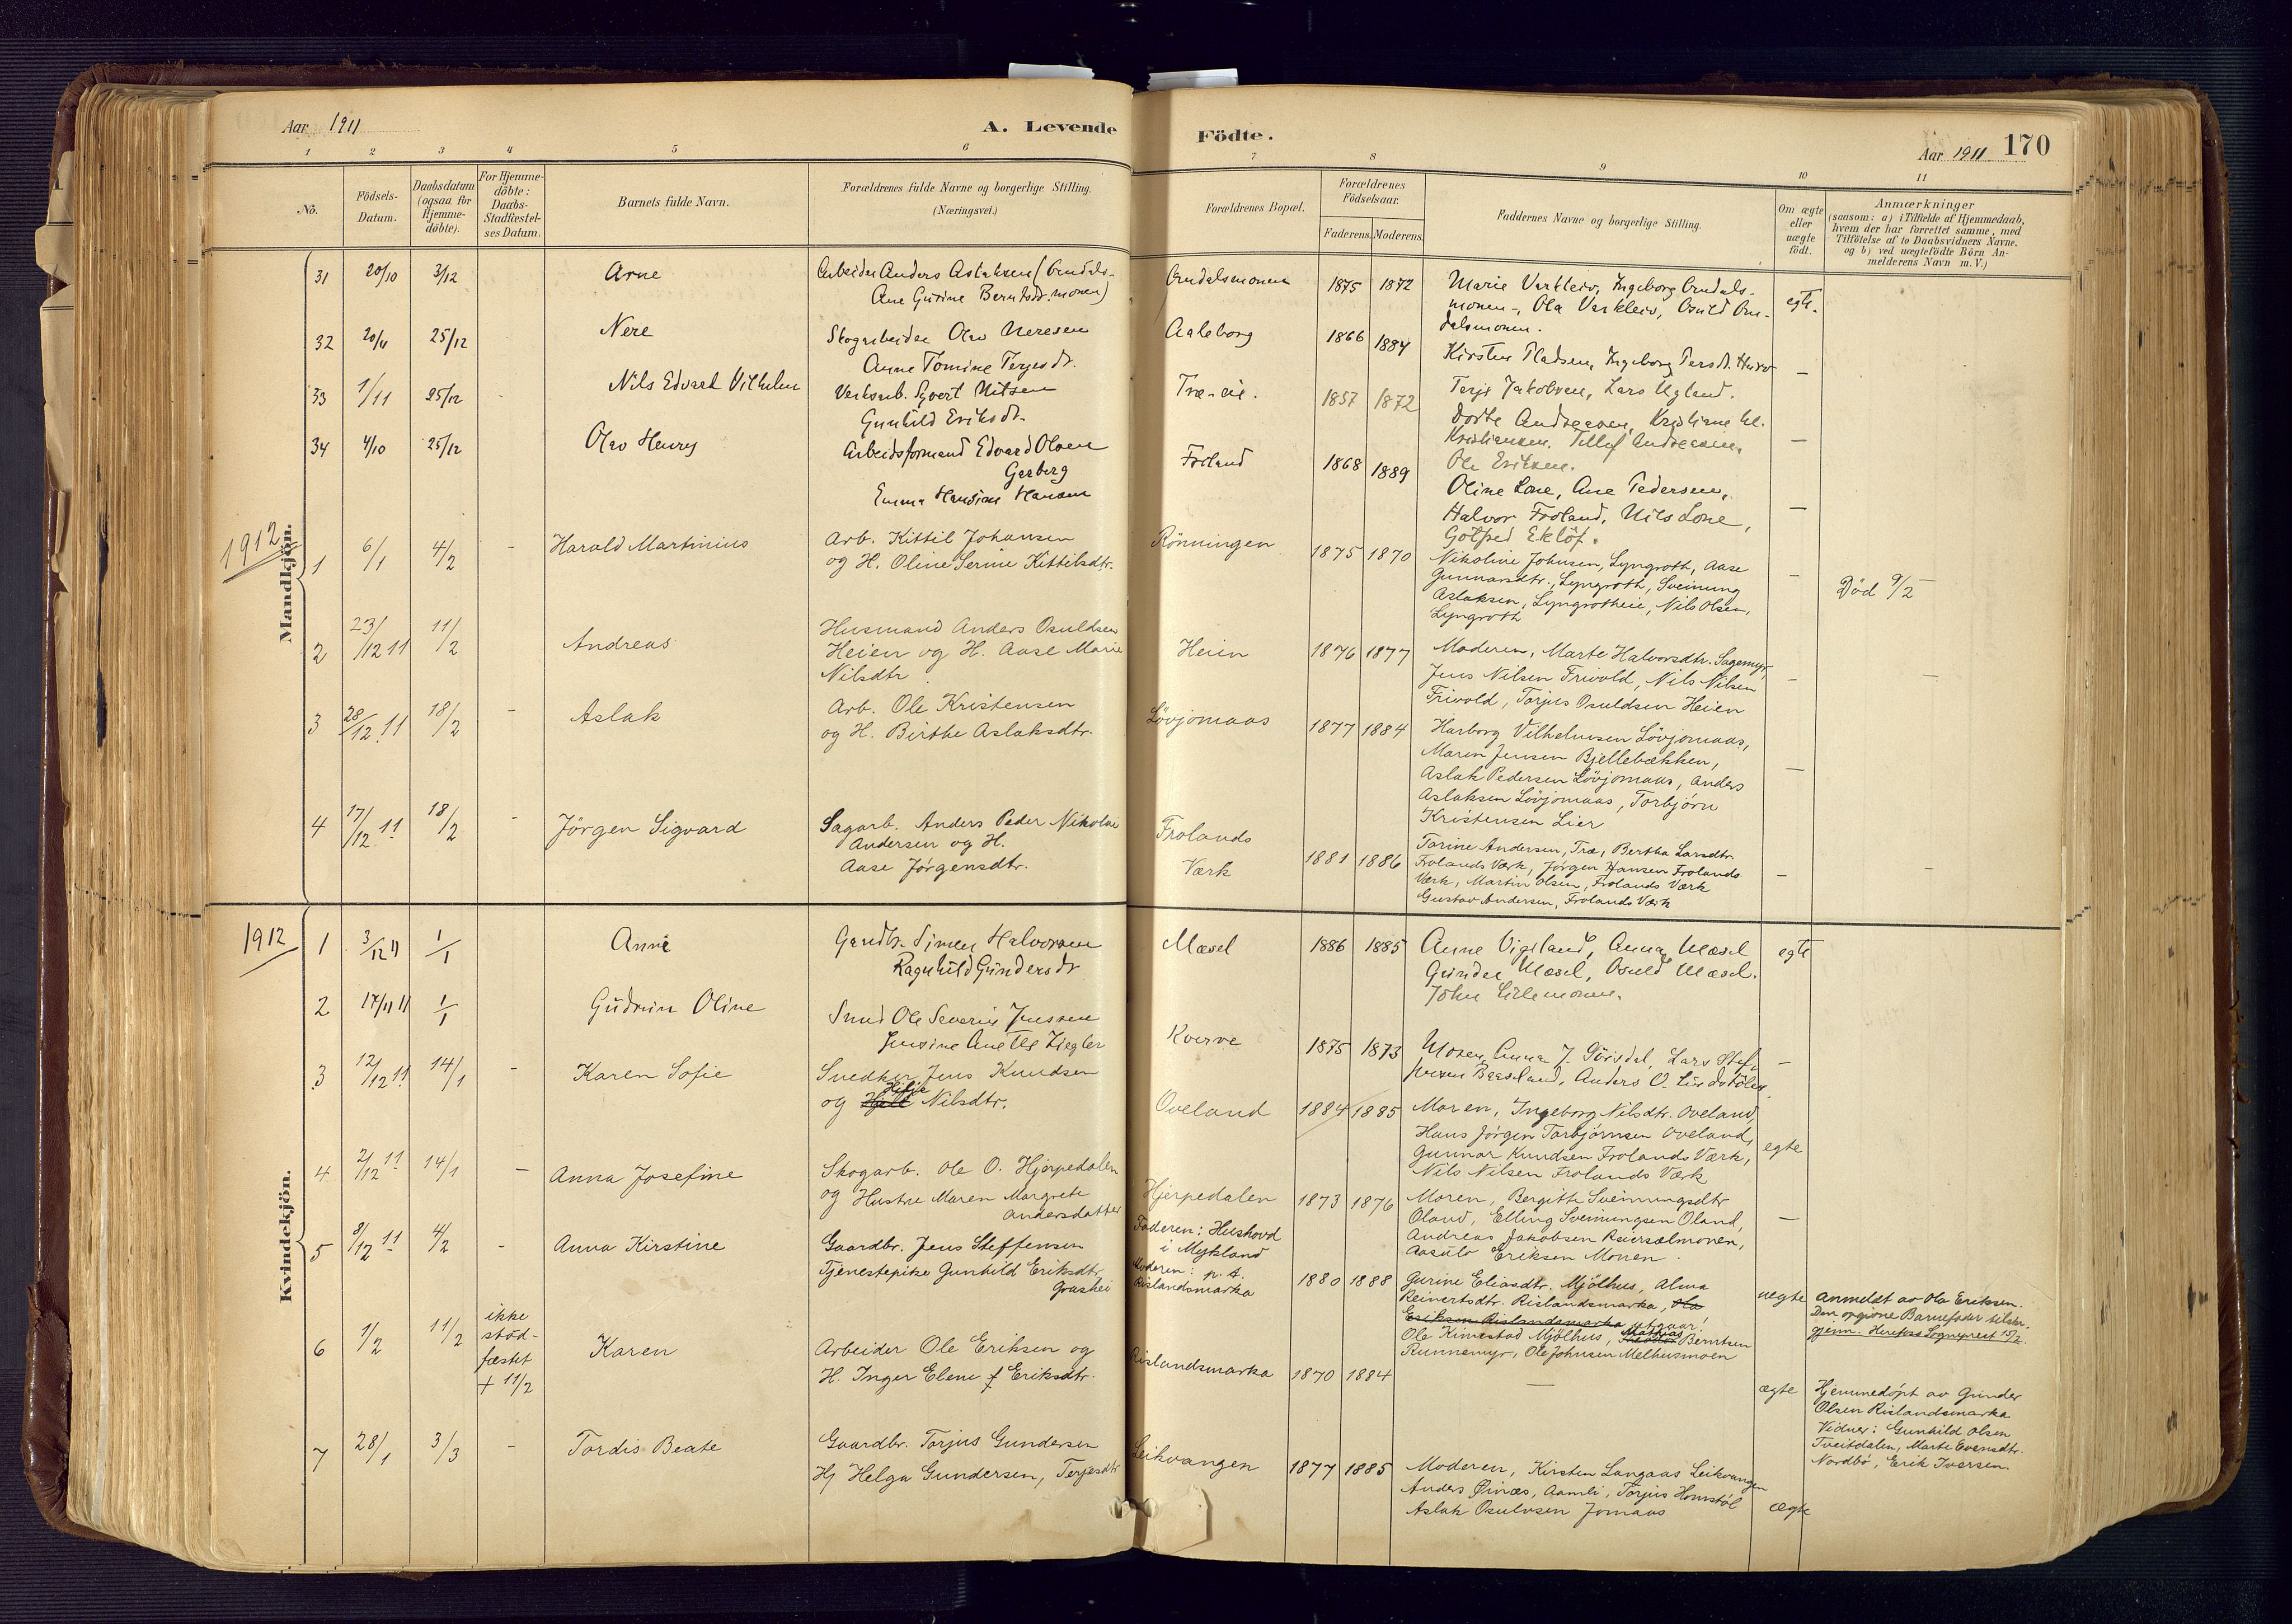 Aar 1911
A. Levende
Födte.
Aar 1911 170
1 2 3 4 5 6 7 8 9 10 11
No.
Födsels-
Datum.
Daabsdatum
(ogsaa for
Hjemme-
döbte).
For Hjemme-
döbte:
Daabs-
Stadfæstel-
ses Datum.
Barnets fulde Navn.
Forældrenes fulde Navne og borgerlige Stilling.
(Næringsvei.)
Forældrenes Bopæl.
Forældrenes
Födselsaar.
Faderens. Moderens.
Faddernes Navne og borgerlige Stilling.
Om ægte
eller
uægte
födt.
Anmærkninger
(saasom: a) i Tilfælde af Hjemmedaab,
hvem der har forrettet samme, med
Tilföielse af to Daabsvidners Navne.
og b) ved uægtefödte Börn An-
melderens Navn m. V.)
Mandkjön.
31 20/10 3/12 Arne
Arbeider Anders Aslaksen
Ane Gurine Berntsdt.
1875 1872
Marie Varkleiv, Ingeborg
Ola Varkleiv, Osuld
egte.
32 25/12 Nere
Skogarbeider Olav Neresen
Anne Tomine Terjesdt.
1866 1884
Kirsten Pladsen, Ingeborg
Terje Jakobsen, Lars Ugland.
–
33 1/11 25/12 Nils Edvart Vilhelm
Gunhild Eriksdt.
1857 1872
Dorte Andreasen, Kristiane
Kristiansen. Tellef Andreasen.
Ole Eriksen.
–
34 4/10 25/12 Olav Henry
Arbeidsformand Edvard Olsen
Froland 1868 1889
Oline Lone, Ane Pedersen,
Halvor Froland, Nils Lone,
Gotfred Eklöf.
–
1912
1 6/1 4/2 – Harald Martinius
Arb. Kittil Johansen
og H. Oline Serine Kittilsdtr.
Rönningen 1875 1870
Nikoline Johnsen, Lyngroth, Aase
Gunnarsdtr., Lyngroth, Sveinung
Aslaksen, Lyngrotheie, Nils Olsen,
Lyngroth
–
Död 9/2
2 23/12 11 11/2 Andreas
Husmand Anders Osuldsen
Heien og H. Aase Marie
Nilsdtr.
Heien 1876 1877
Moderen, Marte Halvorsdtr. Sagemyr,
Jens Nilsen Frivold, Nils Nilsen
Frivold, Torjus Osuldsen Heien
– –
3 28/12 11 18/2 – Aslak
Arb. Ole Kristensen
og H. Birthe Aslaksdtr.
Lövjomaas 1877 1884
Harborg Vilhelmsen Lövjomaas,
Maren Jensen Bjellebækken,
Aslak Pedersen Lövjomaas, Anders
Aslaksen Lövjomaas, Torbjörn
Kristensen Lier
–
4 17/12 11 18/2 – Jörgen Sigvard
Sagarb. Anders Peder Nikolai
Andersen og H.
Aase Jörgensdtr.
Frolands
Værk
1881 1886
Torine Andersen, Træ, Bertha Larsdtr.
Frolands Værk, Jörgen Hansen Frolands
Værk, Martin Olsen, Frolands Værk
Gustav Andersen, Frolands Værk
– –
Kvindekjön.
1912
1 3/12 11 1/1 Anne
Gaardbr. Simen Halvorsen
Ragnhild Gundersdt
Mæsel 1886 1885
Anne Vigeland, Anna Mæsel
Gunder Mæsel, Osuld Mæsel.
John
egte
2 17/11 11 1/1 Gudrun Oline
Smed Ole Severin Jenssen
Jensine Anette Ziegler
Kverve 1875 1873
Moren, Anna J.
Anders O.
–
3 12/12 11 14/1 – Karen Sofie
Snedker Jens Knudsen
og Nilsdtr.
Oveland 1884 1885
Moren, Ingeborg Nilsdtr. Oveland,
Hans Jörgen Torbjörnsen Oveland,
Gunnar Knudsen Frolands Værk,
Nils Nilsen Frolands Værk
egte
4 2/12 11 14/1 – Anna Josefine
Skogarb. Ole O. Hjerpedalen
og Hustru Maren Margrete
Andersdatter
Hjerpedalen 1873 1876
Moren, Bergitte Sveinungsdtr
Oland, Elling Sveinungsen Oland,
Andreas Jakobsen
Aasulv Eriksen Monen.
–
5 8/12 11 4/2 – Anna Kirstine
Gaardbr. Jens Steffensen
Tjenestepike Gunhild Eriksdtr.
Grashei
Faderen: Hushovd
i Mykland
Moderen: p. t.
Rislandsmarka
1880 1888
Gurine Eliasdtr. Mjölhus, Alma
Reinertsdtr. Rislandsmarka, Ola
Eriksen Rislandsmarka utgaar!
Ole Kimestad Mjölhus, Mathias Berntsen
Runnemyr, Ole Johnsen Melhusmoen
uegte
Anmeldt av Ola Eriksen.
Den opgivne Barnefader
Sogneprest 15/2.
6 1/2 11/2
ikke
stad-
fæstet
+ 11/2
Karen
Arbeider Ole Eriksen og
H. Inger Elene f Eriksdtr.
Rislandsmarka 1870 1884
–
ægte
Hjemmedöpt av Gunder
Olsen Rislandsmarka
Vidner: Gunhild Olsen
Tveitdalen, Marte Evensdtr.
Nordbö, Erik Iversen.
7 28/1 3/3 – Tordis Beate
Gaardbr. Torjus Gundersen
Hj Helga Gundersen, Terjesdtr
Leikvangen 1877 1885
Moderen, Kirsten Langaas Leikvangen
Anders Öinæs, Aamli, Torjus Homstöl
Aslak Osulvsen Jomaas
ægte